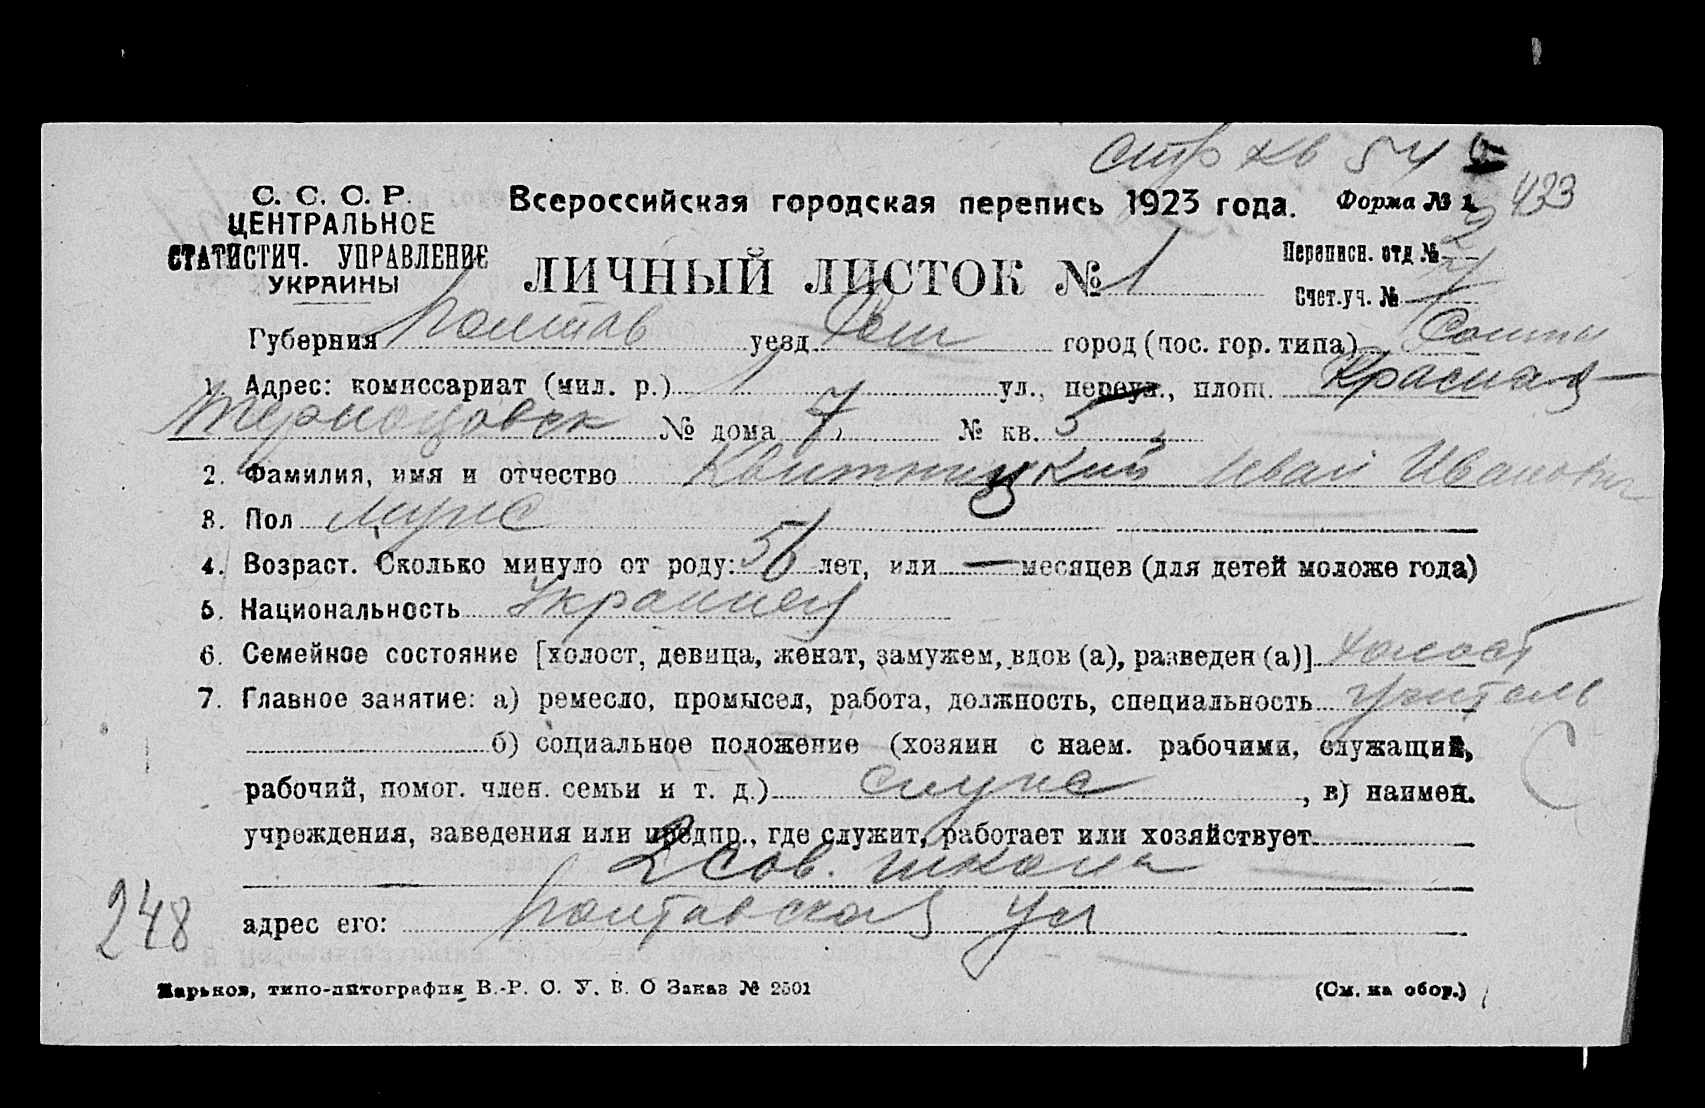 стр кв 54
С. С. С. Р.
ЦЕНТРАЛЬНОЕ
СТАТИСТИЧ. УПРАВЛЕНИЕ
УКРАИНЫ
Всероссийская городская перепись 1923 года.
Форма № 1.
423
ЛИЧНЫЙ ЛИСТОК № 1
Переписн. отд № 2
Счет.уч. №
Губерния Полтав уезд город (пос. гор. типа)
1. Адрес: комиссариат (мил. р.) 1 ул., переул., площ. Красная
№ дома 7 № кв. 5
2. Фамилия, имя и отчество Квитницкий Иван Иванович
3. Пол мужс
4. Возраст. Сколько минуло от роду: 56 лет, или — месяцев (для детей моложе года)
5. Национальность Украинец
6. Семейное состояние [холост, девица, женат, замужем, вдов (а), разведен (а)] холост
7. Главное занятие: а) ремесло, промысел, работа, должность, специальность учитель
б) социальное положение (хозяин с наем. рабочими, служащий,
рабочий, помог. член. семьи и т. д.) служ , в) наимен.
учреждения, заведения или предпр., где служит, работает или хозяйствует
2 сов. школа
248
адрес его: Полтавская ул
Харьков, типо-литография В.-Р. С. У. В. О Заказ № 2501
(См. на обор.)